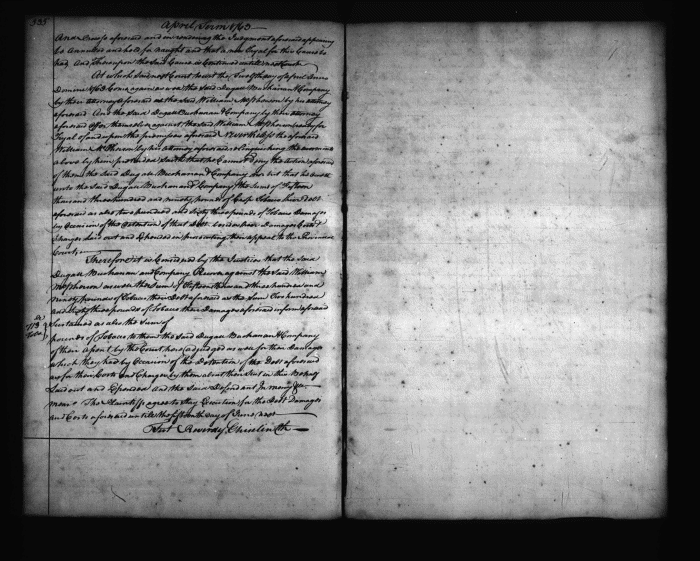 335
April Term 1763
and Cause aforesaid and in rendering the Judgment aforesaid appearing
be annulled and held for naught and that a new Tryal for this Cause be
had, And thereupon this said Cause is Continued until next Court
At which said next Court to wit the Twelfth day of April Anno
Domini 1763 Come again as well the said Dugall Buchanan & Company
by their attorney aforesaid as the said William McPherson by his attorney
aforesaid And the said Dugall Buchanan & Company by their attorney
aforesaid offer themselves against the said William McPherson ready for
Tryal of and upon the premisses aforesaid Nevertheless the aforesaid
William McPherson by his attorney aforesaid relinquishing the averment
above by him pretended saith that he Cannot deny the action aforesaid
of them the said Dugall Buchanan & Company nor but that he oweth
unto the said Dugall Buchanan and Company the sum of Fifteen
thousand three hundred and ninety pounds of Crop Tobacco their Debt
aforesaid as also two hundred and sixty three pounds of Tobacco Damages
by Occasion of the Detention of that Debt besides their Damages Costs &
Charges laid out and Expended in prosecuting their appeal to the Provincial
Court,
Therefore it is Considered by the Justices that the said
Dugall Buchanan and Company Recover against the said William
McPherson as well the Sum of Fifteen thousand three hundred and
Ninety pounds of Tobacco their Debt aforesaid as the Sum Two hundred
and sixty three pounds of Tobacco their Damages aforesaid in form aforesaid
Sustained as also the Sum of
pounds of Tobacco to them the said Dugall Buchanan & Company
of their Assent by the Court here adjudged as well for their Damages
which they had by Occasion of the Detention of the Debt aforesaid
as for their Costs and Charges by them about their Suit in this Behalf
Laid out and Expended And the said Defendant In mercy &c
mem.o The Plaintiffs agree to Stay Execution for the Debt Damages
and Costs aforesaid until the fifteenth day of June next
Test Reverdy Ghiselin Clk